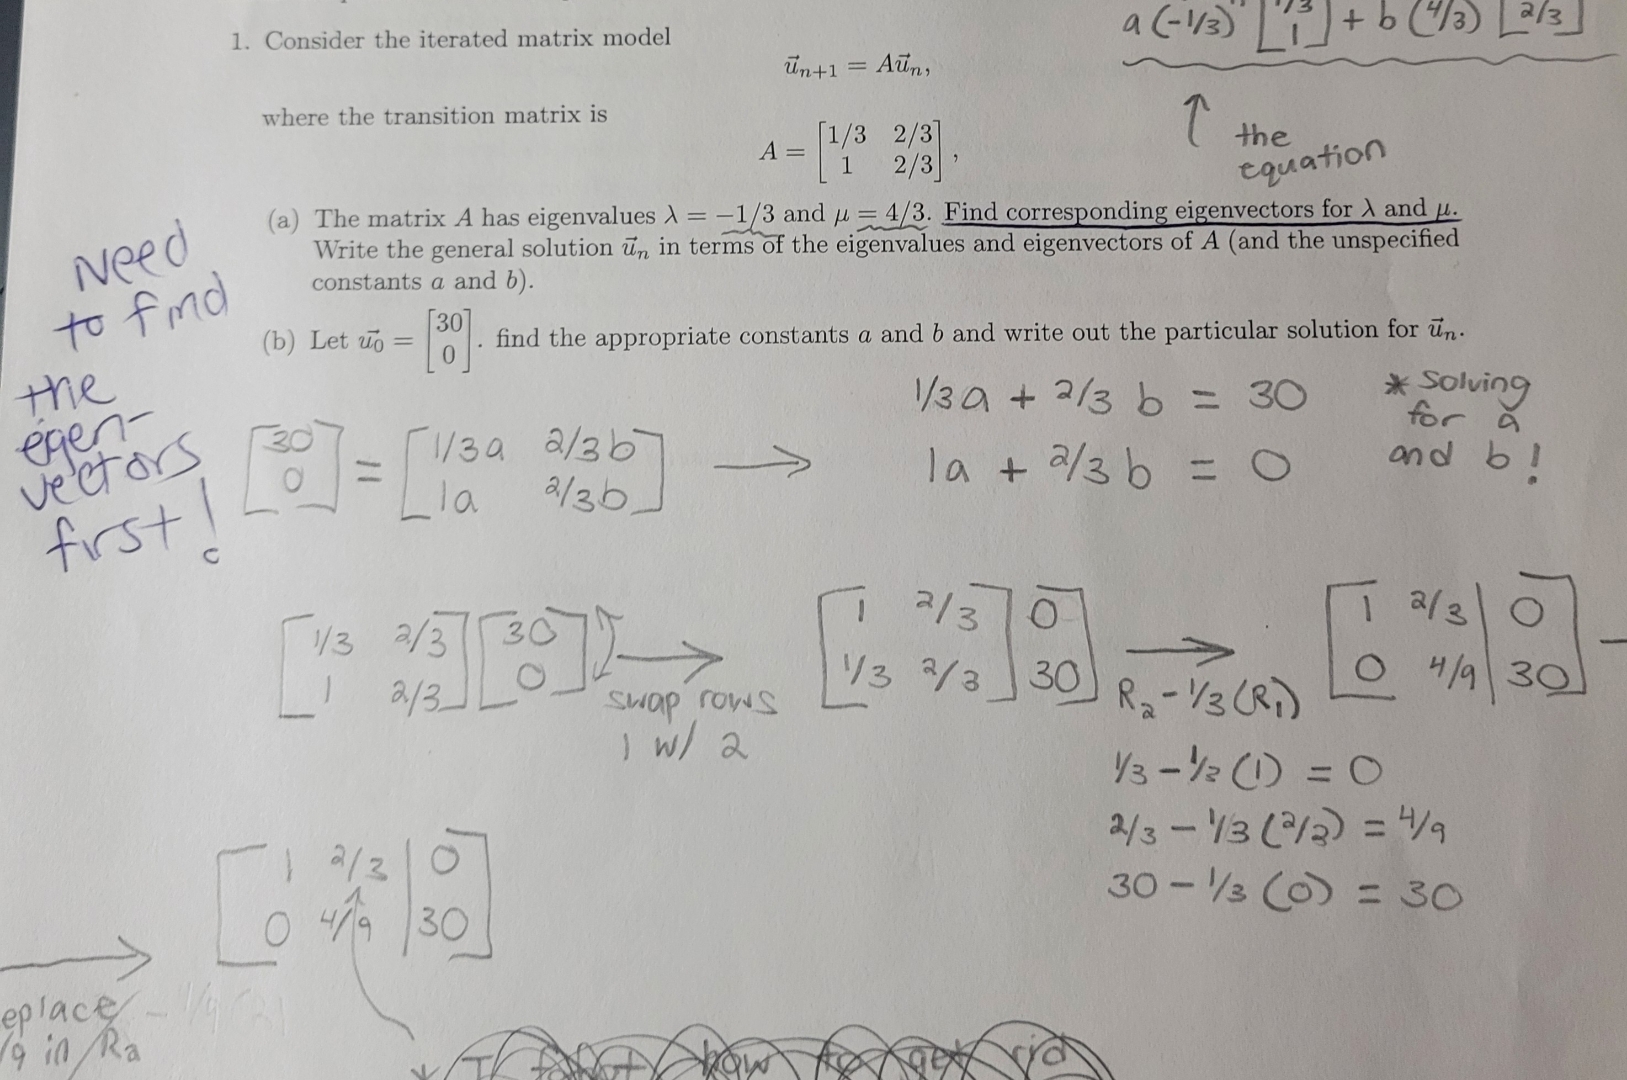 a (-1/3)ⁿ [1/3 1] + b (4/3) [2/3]
1. Consider the iterated matrix model
u⃗ₙ₊₁ = Au⃗ₙ,
where the transition matrix is
A = [1/3 2/3
1 2/3],
↑ the
equation
(a) The matrix A has eigenvalues λ = −1/3 and μ = 4/3. Find corresponding eigenvectors for λ and μ.
Write the general solution u⃗ₙ in terms of the eigenvalues and eigenvectors of A (and the unspecified
constants a and b).
(b) Let u⃗₀ = [30 0]. find the appropriate constants a and b and write out the particular solution for u⃗ₙ.
Need
to find
the
eigen-
vectors
first!
[30 0] = [1/3a 2/3b
1a 2/3b] →
1/3a + 2/3 b = 30
1a + 2/3 b = 0
* Solving
for a
and b!
[1/3 2/3
1 2/3] [30 0] →
swap rows
1 w/ 2
[1 2/3 | 0
1/3 2/3 | 30] →
R₂ - 1/3 (R₁)
[1 2/3 | 0
0 4/9 | 30] -
1/3 - 1/3 (1) = 0
2/3 - 1/3 (2/3) = 4/9
30 - 1/3 (0) = 30
→
eplace
/9 in R2
[1 2/3 | 0
0 4/9 | 30]
* I how to get rid